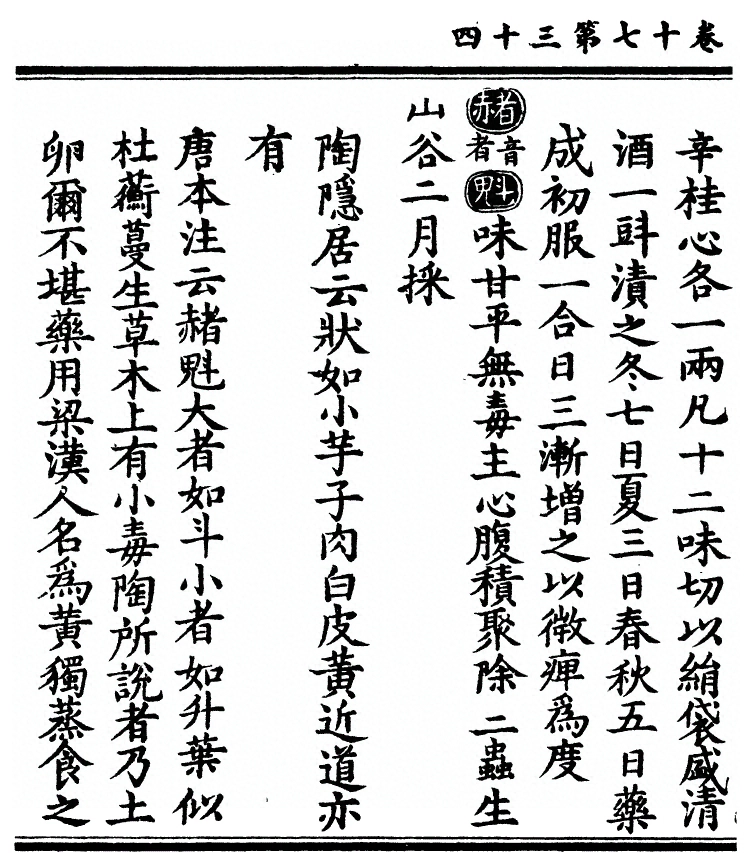 卷十七第三十四
辛桂心各一兩凡十二味切以絹袋盛清
酒一㪷漬之冬七日夏三日春秋五日藥
成初服一合日三漸增之以微痺為度
赭音者魁味甘平無毒主心腹積聚除二蟲生
山谷二月採
陶隱居云狀如小芋子肉白皮黃近道亦
有
唐本注云赭魁大者如斗小者如升葉似
杜蘅蔓生草木上有小毒陶所說者乃土
卵爾不堪藥用梁漢人名為黃獨蒸食之